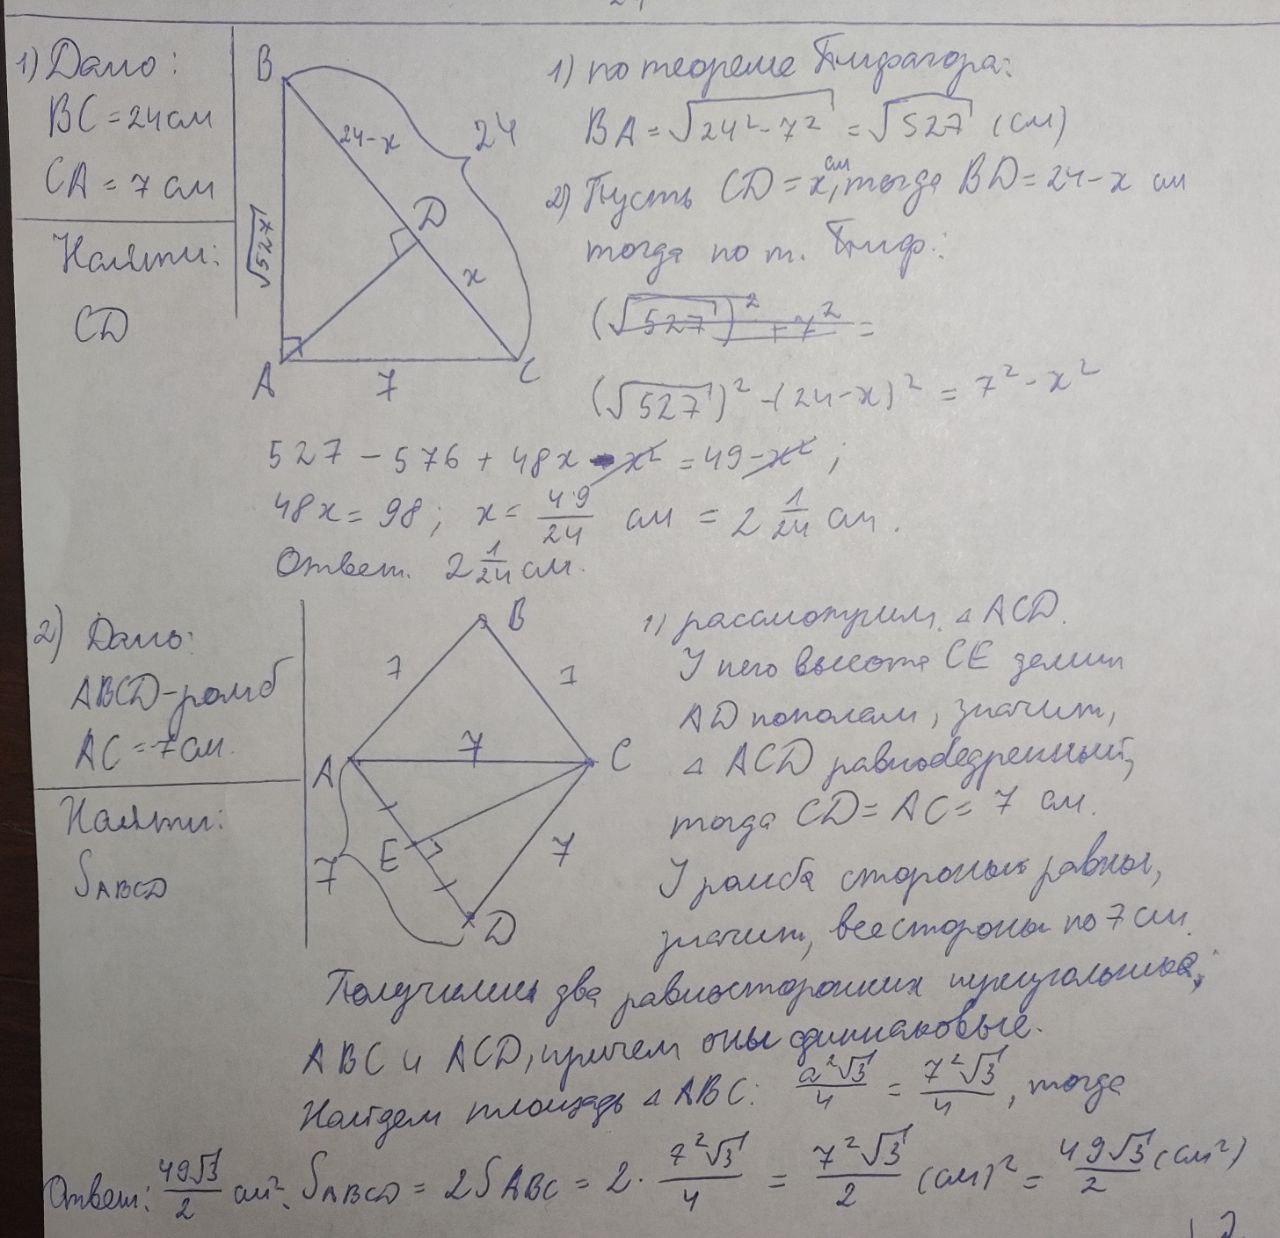 1) Дано:
BC = 24 см
CA = 7 см
Найти:
CD
B
24-x
24
D
x
√527
A
7
C
1) по теореме Пифагора:
BA = √24² - 7² = √527 (см)
2) Пусть CD = x см, тогда BD = 24 - x см
тогда по т. Пиф.:
(√527)² + 7² =
(√527)² - (24 - x)² = 7² - x²
527 - 576 + 48x - x² = 49 - x² ;
48x = 98 ; x = 49/24 см = 2 1/24 см.
Ответ. 2 1/24 см.
2) Дано:
ABCD - ромб
AC = 7 см.
Найти:
S ABCD
B
7
7
A
7
C
E
7
7
D
1) рассмотрим △ ACD.
У него высота CE делит
AD пополам, значит,
△ ACD равнобедренный,
тогда CD = AC = 7 см.
У ромба стороны равны,
значит, все стороны по 7 см.
Получились два равносторонних треугольника,
ABC и ACD, причем они одинаковые.
Найдем площадь △ ABC: a²√3/4 = 7²√3/4, тогда
Ответ: 49√3/2 см². S ABCD = 2S ABC = 2 · 7²√3/4 = 7²√3/2 (см)² = 49√3/2 (см²)